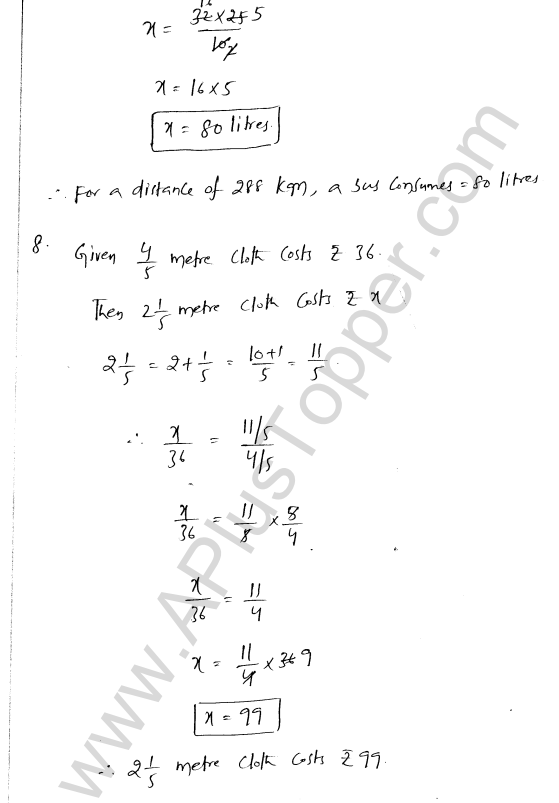 x = 32 16 × 25 5 / 10 2
x = 16 × 5
x = 80 litres
∴ For a distance of 288 kgm, a bus consumes = 80 litres
8. Given 4/5 metre cloth costs ₹ 36.
Then 2 1/5 metre cloth costs ₹ x
2 1/5 = 2 + 1/5 = 10+1/5 = 11/5
∴ x/36 = 11/5 / 4/5
x/36 = 11/8 × 8/4
x/36 = 11/4
x = 11/4 × 36 9
x = 99
∴ 2 1/5 metre cloth costs ₹ 99.
www.APlusTopper.com